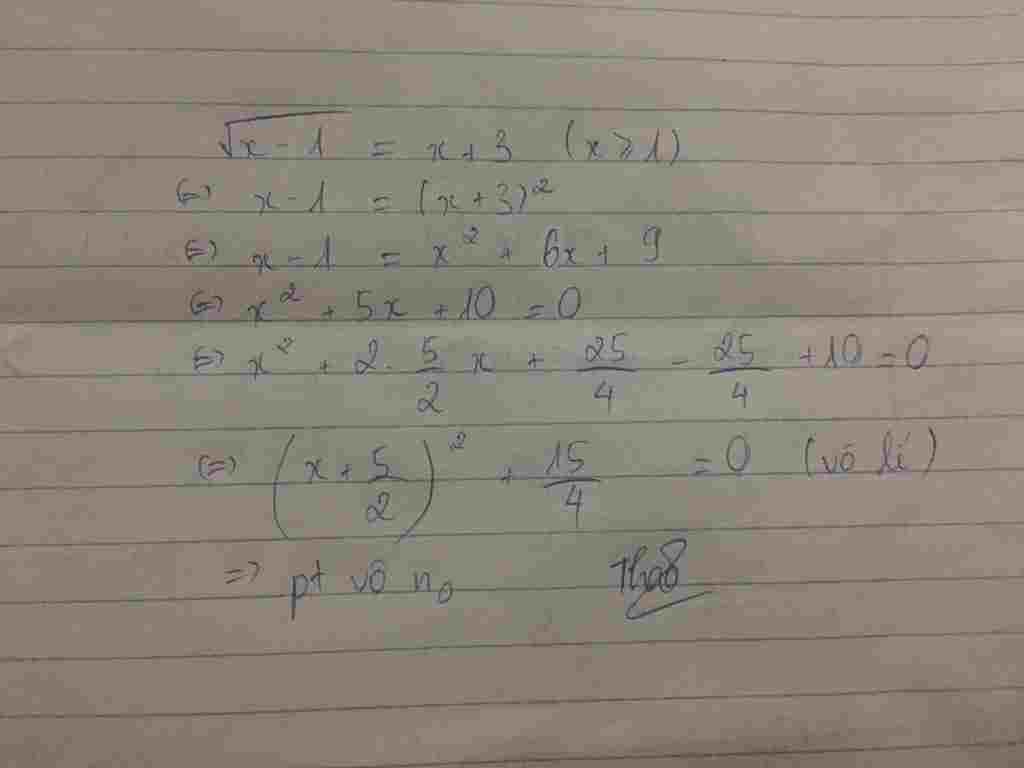 √x - 1 = x + 3 (x ≥ 1)
(=) x - 1 = (x + 3)²
(=) x - 1 = x² + 6x + 9
(=) x² + 5x + 10 = 0
(=) x² + 2. 5/2 x + 25/4 - 25/4 + 10 = 0
(=) (x + 5/2)² + 15/4 = 0 (vô lí)
=> pt vô n₀